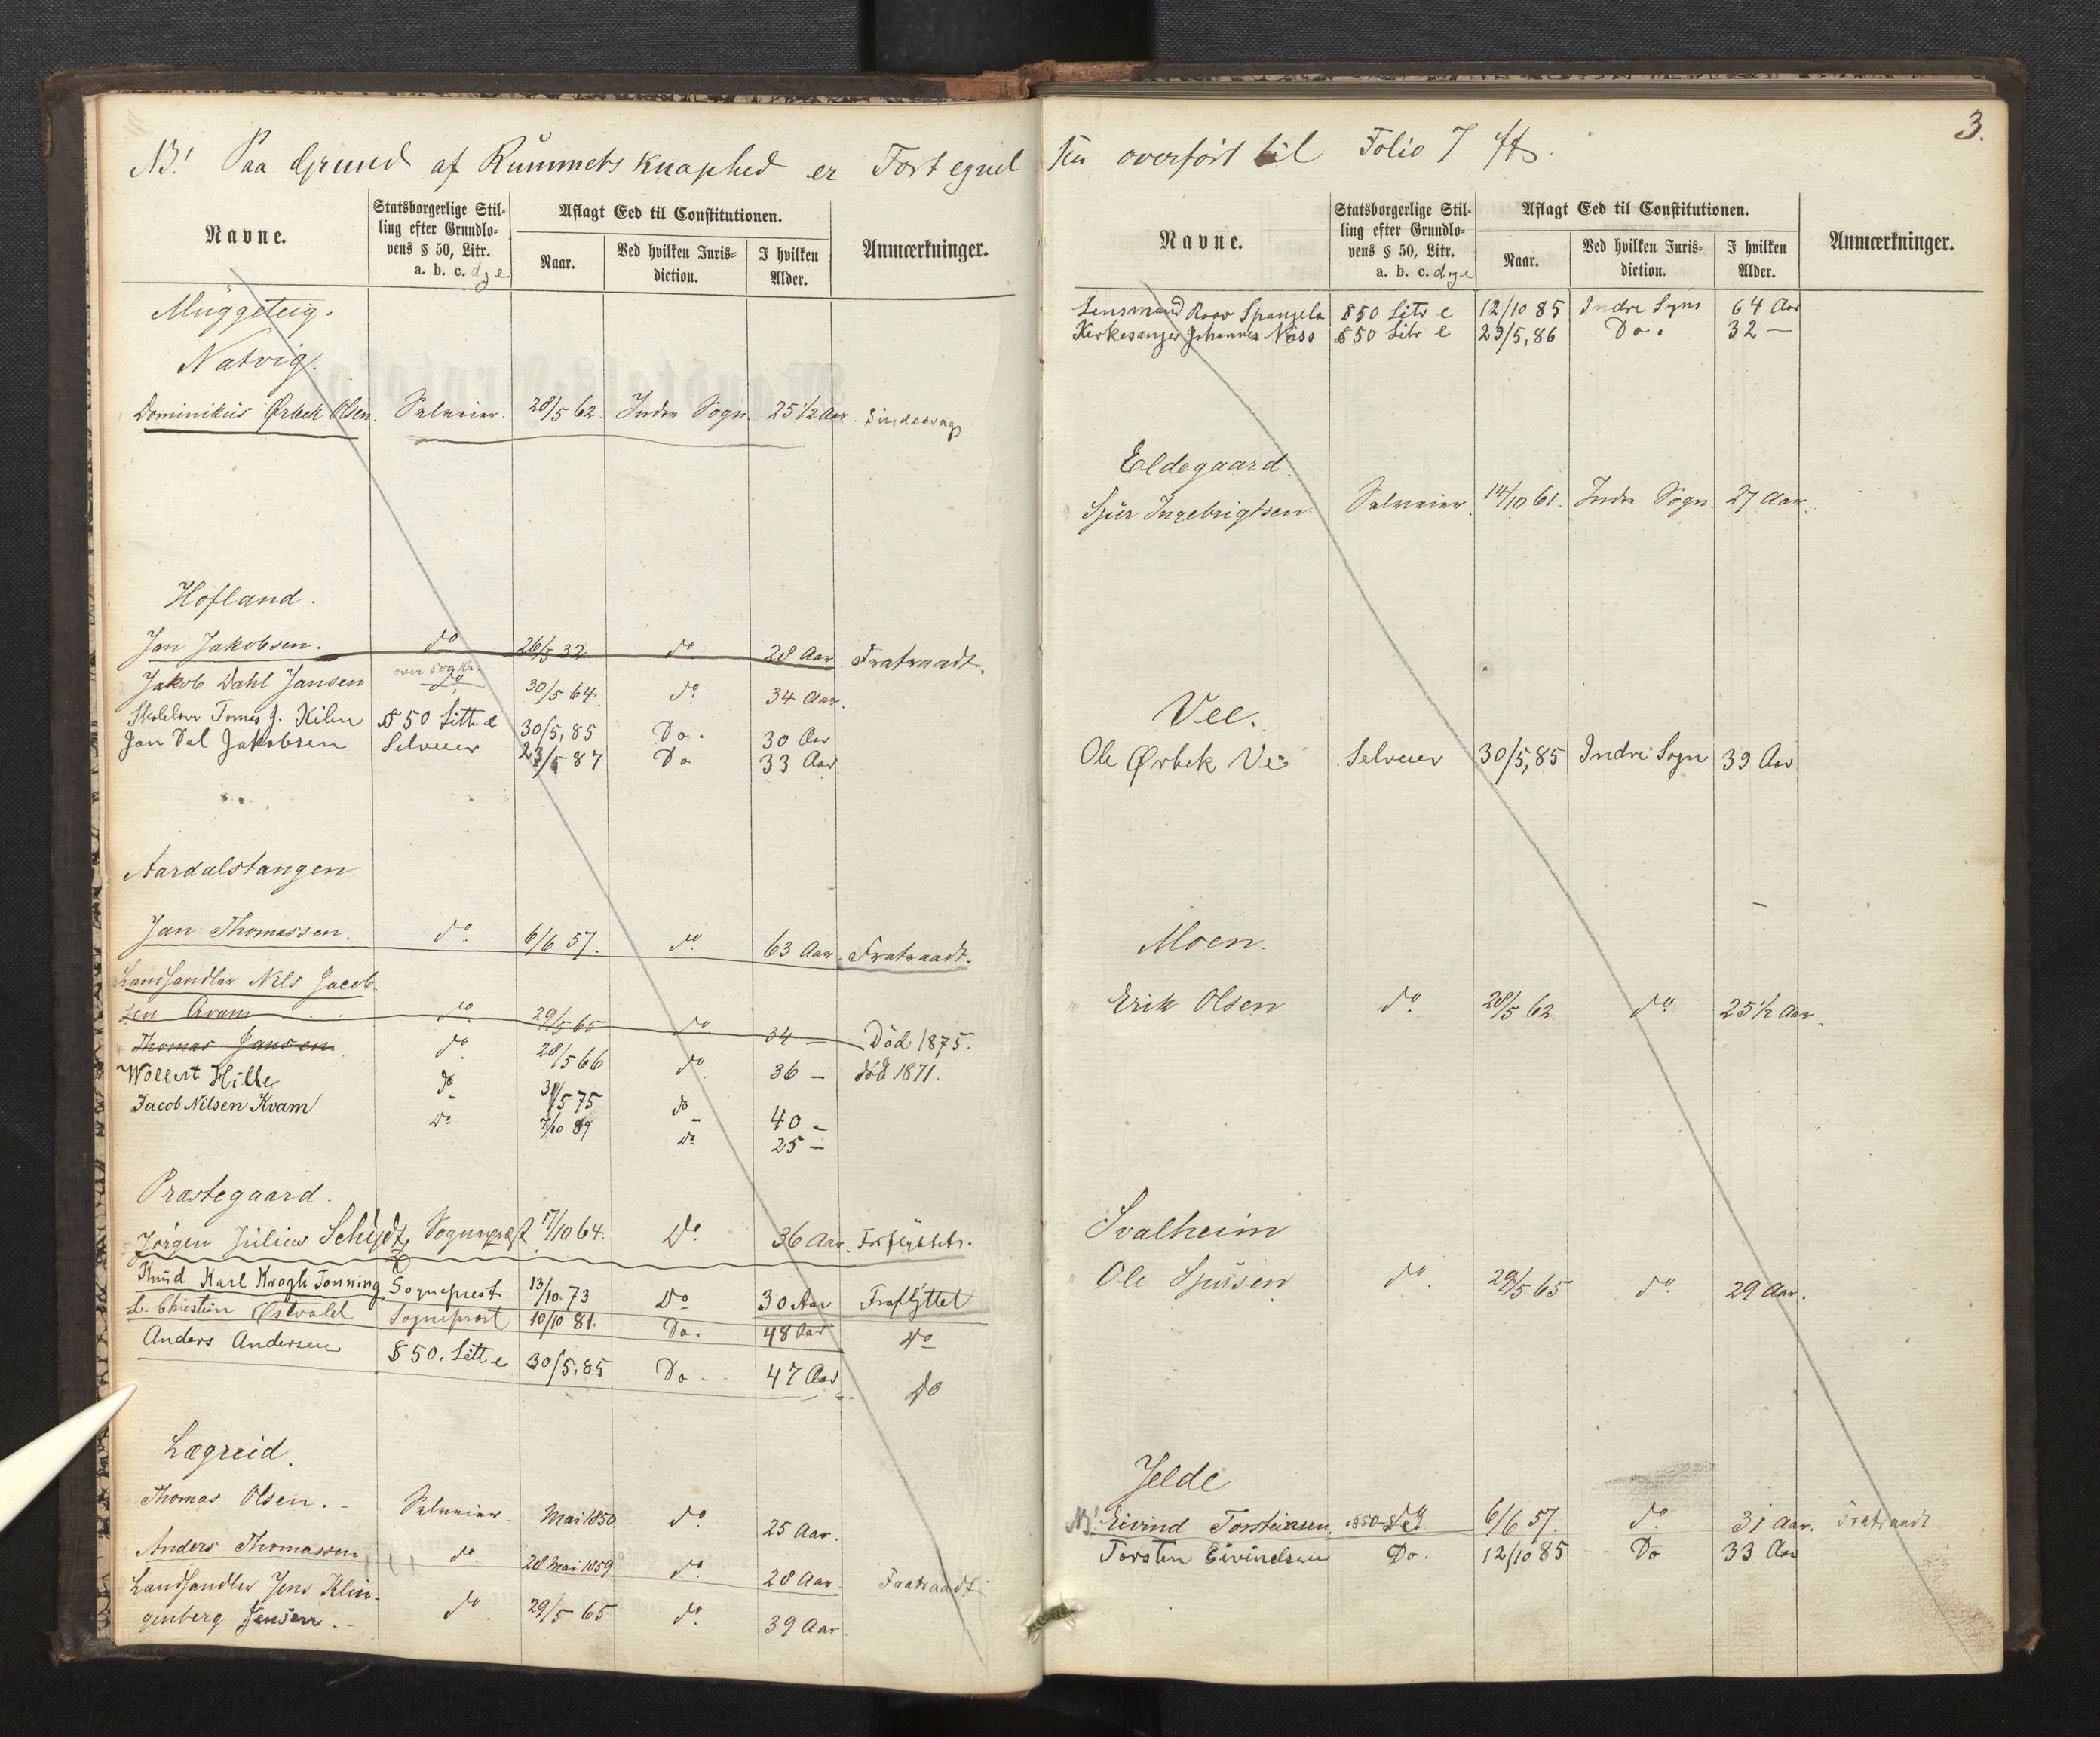 3.
NB! Paa Grund af Rummets Knaphed er Fortegnel
sen overført til Folio 7 ff.
Navne.
Statsborgerlige Stil-
ling efter Grundlo-
vens § 50, Litr.
a. b. c. d, e
Aflagt Eed til Constitutionen.
Naar.
Ved hvilken Juris-
diction.
I hvilken
Alder.
Anmærkninger.
Muggeteig.
Natvig.
Dominikus Ørbek Olsen. Selveier. 28/5 62. Indre Sogn. 25 1/2 Aar.
Hofland.
Jan Jakobsen. do 26/5 32 do 28 Aar. Fratraadt.
over 500 Kr.
Jakob Dahl Jansen do 30/5 64. do 34 Aar.
Skolelær Tomes J. Kilen § 50 Litt e 30/5, 85 Do. 30 Aar
Jan Dal Jakobsen Selveier 23/5 87 Do 33 Aar
Aardalstangen.
Jan Thomassen. do. 6/6 57. do. 63 Aar. Fratraadt.
Landhandler Nils Jacob-
sen Qvam do 29/5 65 do 34 — Død 1875.
Thomas Jansen do 28/5 66 do. 36 — død 1871.
Wollert Hille do 31/5 75 do 40 —
Jacob Nilsen Kvam Do 7/10 89 Do 25 —
Præstegaard.
Jørgen Julius Schydtz, Sognepræst 17/10 64. Do. 36 Aar. Forflyttet.
Knud Karl Krogh Tonning, Sogneprest 13/10.73 Do 30 Aar Fraflyttet
L. Christian Østvold Sogneprest 10/10 81. Do. 48 Aar Do
Anders Andersen § 50. Litt e 30/5, 85 Do 47 Aar Do
Lægreid.
Thomas Olsen. Selveier. Mai 1850 do. 25 Aar.
Anders Thomassen do. 28 Mai 1859 do. 28 Aar. Fratraadt
Landhandler Jens Klin-
genberg Jensen. do. 29/5 65 do. 39 Aar
Navne.
Statsborgerlige Stil-
ling efter Grundlo-
vens § 50, Litr.
a. b. c. d, e
Aflagt Eed til Constitutionen.
Naar.
Ved hvilken Juris-
diction.
I hvilken
Alder.
Anmærkninger.
Lensmand Roar Spangelo § 50 Litr e 12/10 85 Indre Sogn 64 Aar
Kirkesanger Johannes Næss § 50 Litr e 23/5, 86 Do. 32 —
Eldegaard.
Sjur Ingebrigtsen Selveier. 14/10 61. Indre Sogn. 27 Aar.
Vee.
Ole Ørbek Ve Selveier 30/5, 85 Indre Sogn 39 Aar
Moen.
Erik Olsen do. 28/5 62. do 25 1/2 Aar.
Svalheim
Ole Sjursen do. 29/5 65 do. 29 Aar.
Jelde
NB. Eivind Torsteinsen, 6/6 57. do. 31 Aar. Fratraadt
Torsten Eivindsen Do. 12/10 85 Do 33 Aar